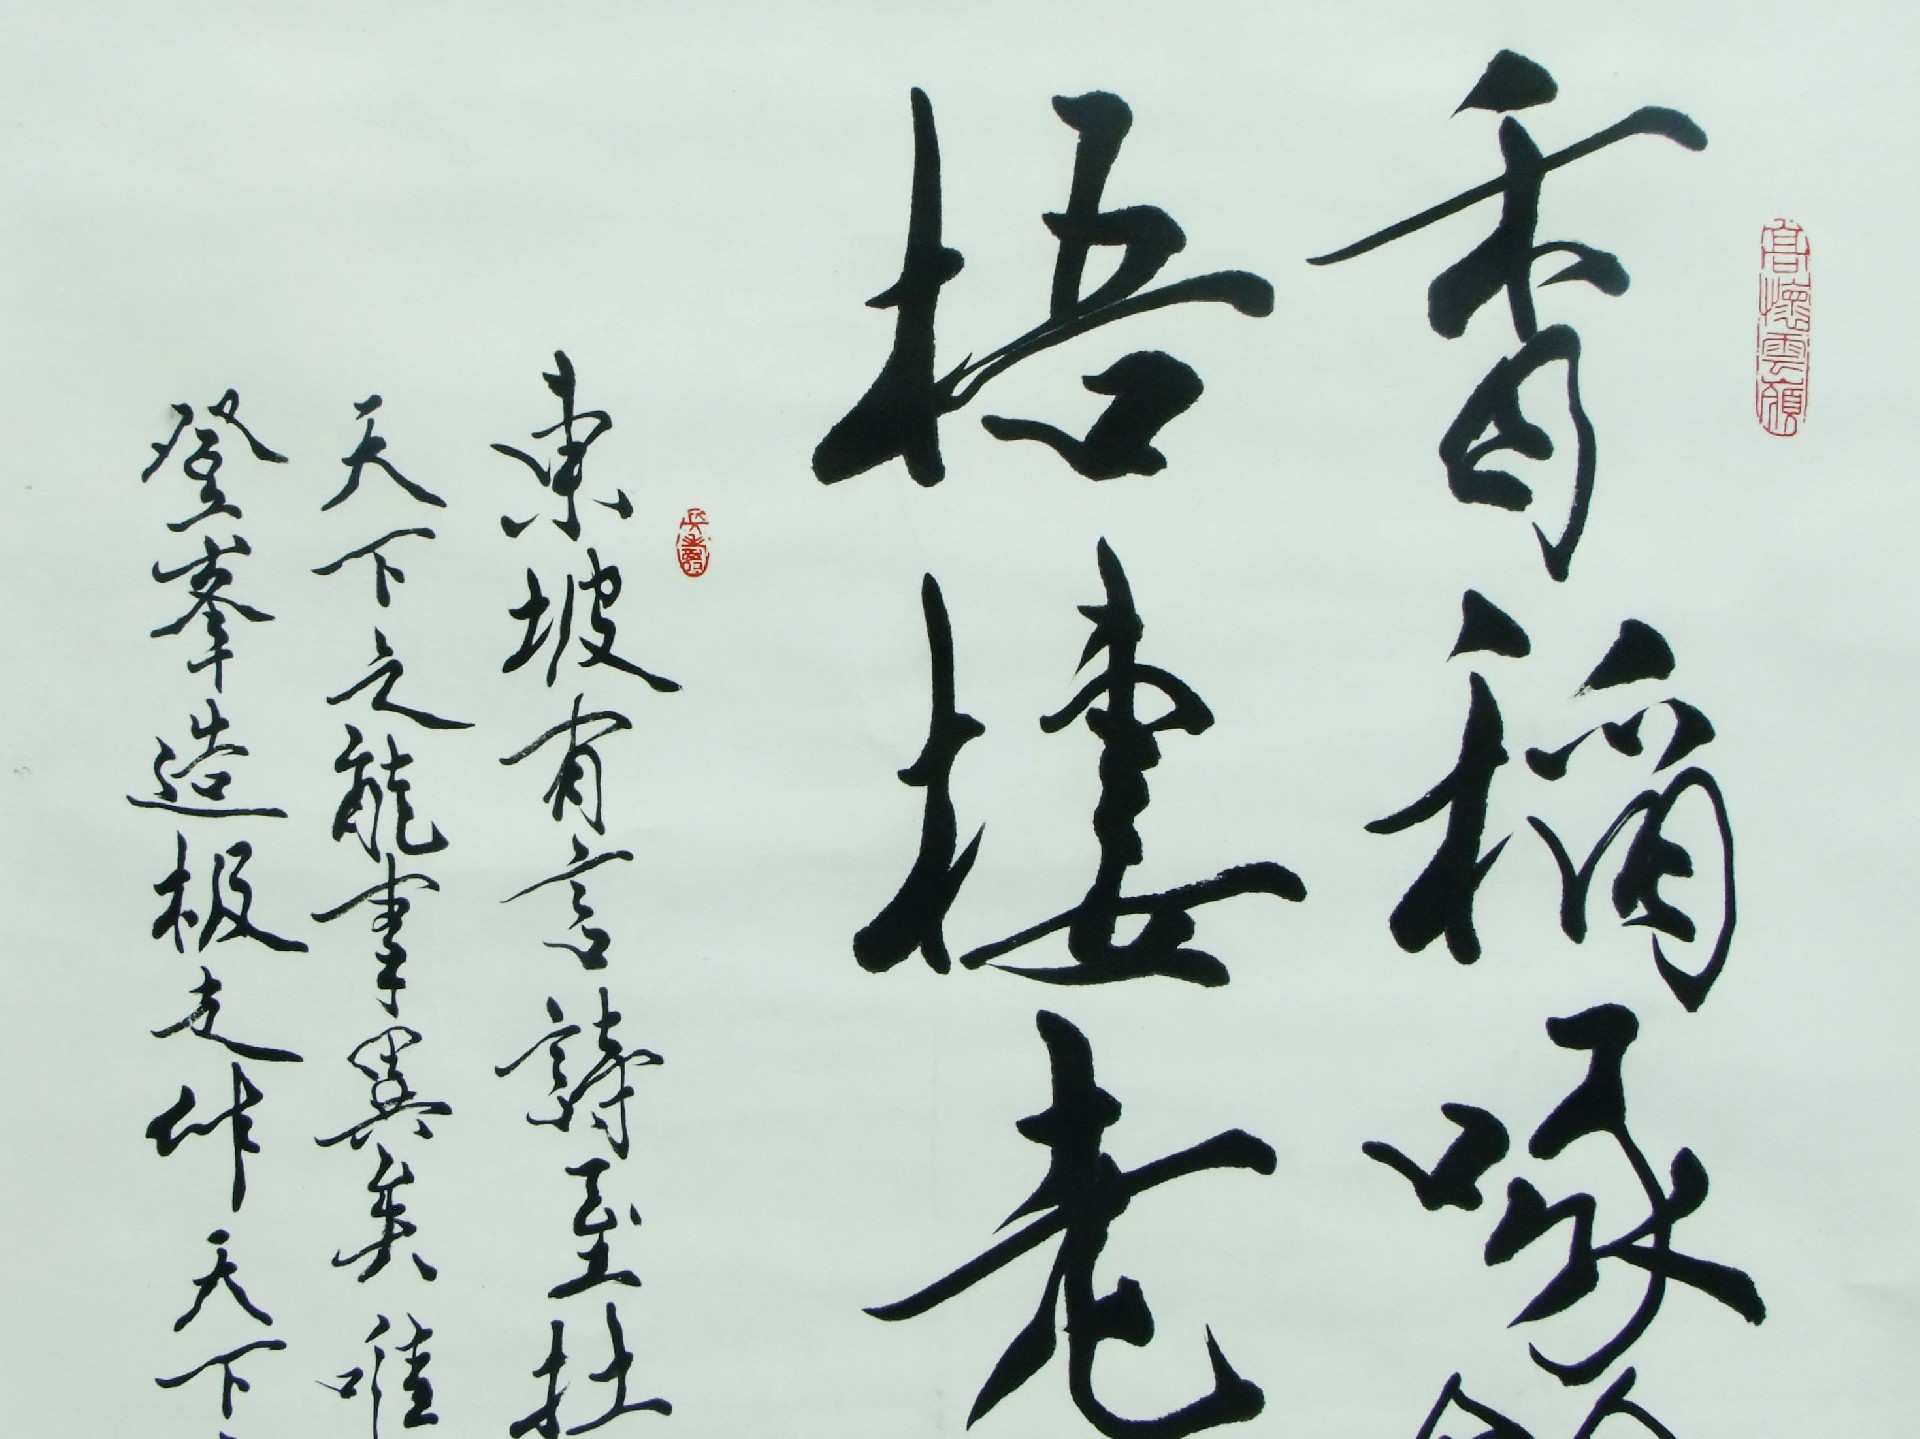 高懷雲嶺
香稻啄
梧棲老
東坡有言詩至杜
天下之能事異矣唯
登峯造极作天下